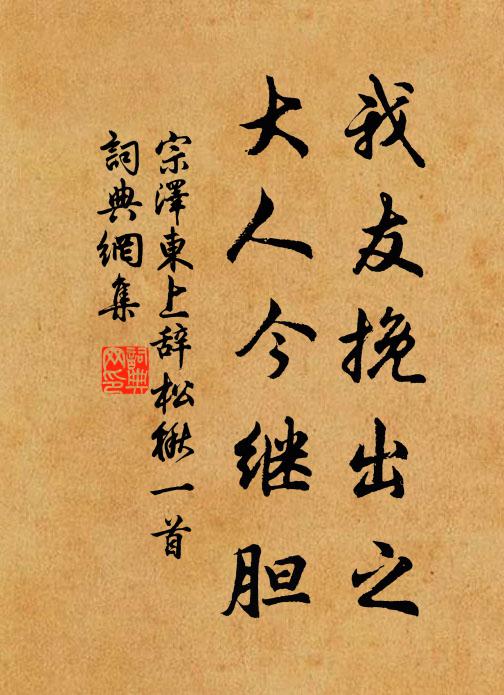 我友挽出之
大人今继胆
宗澤東上辞松楸一首
詞典網集
詞典